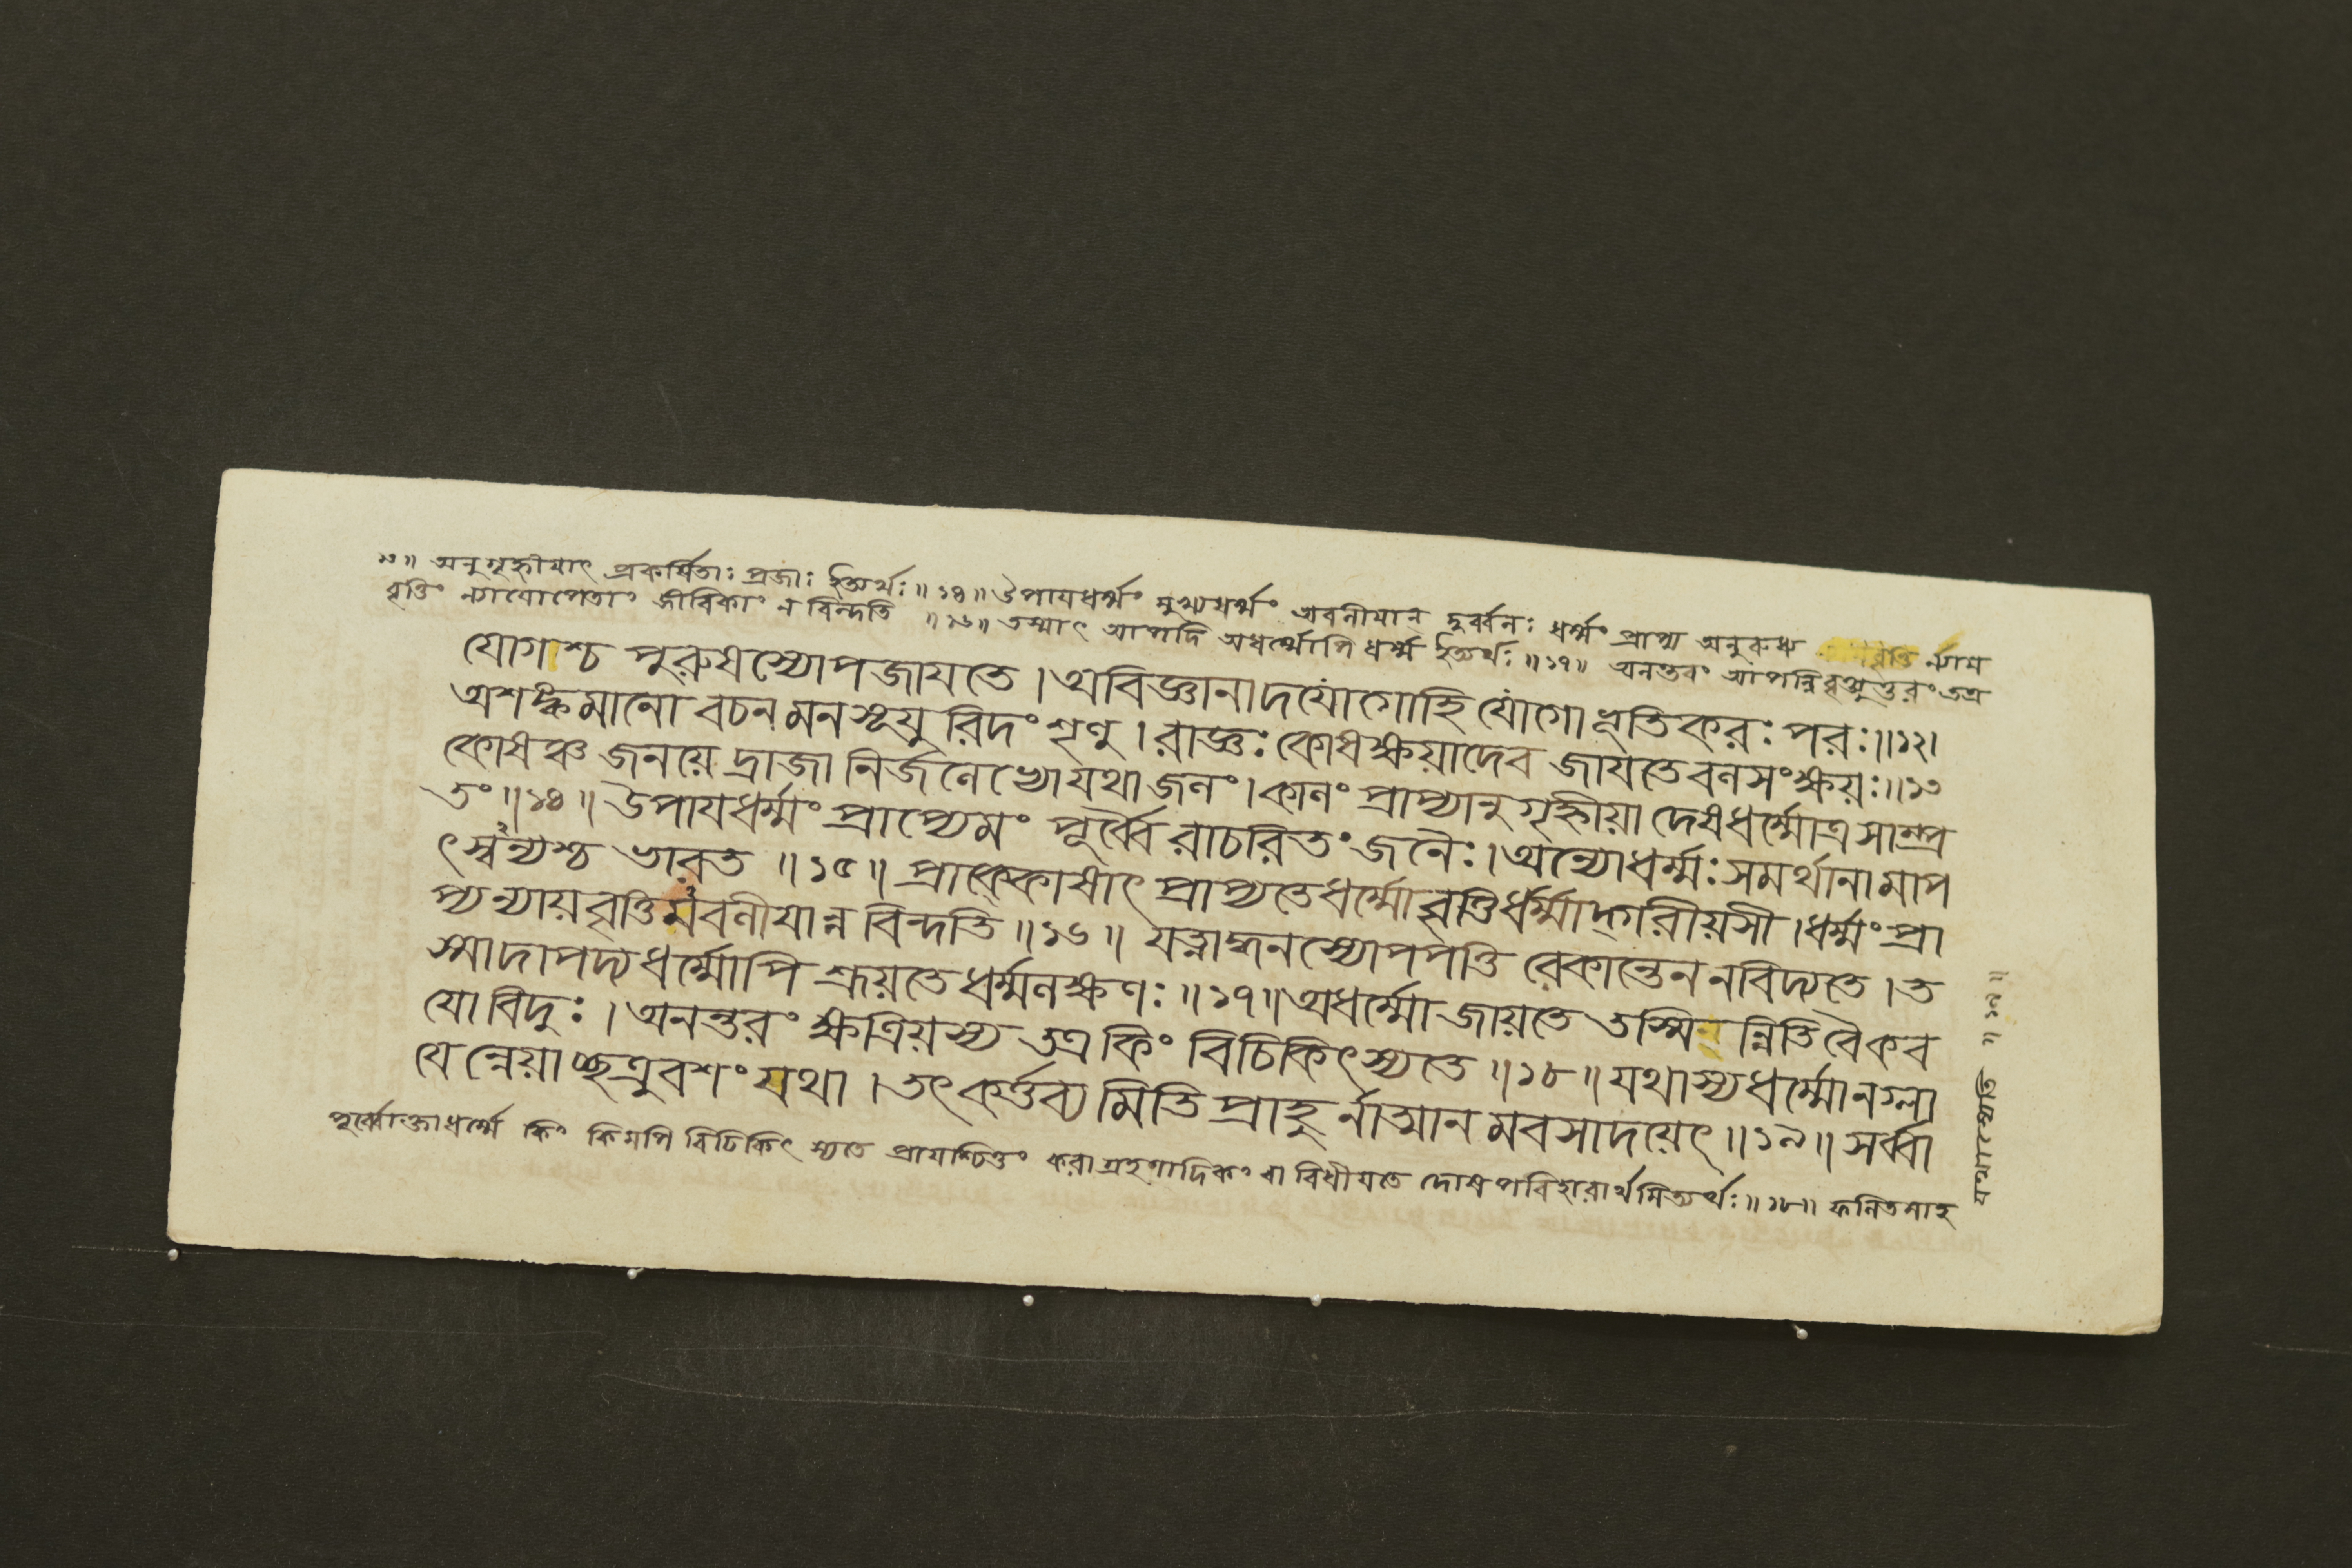 ১৩॥ অনুগৃহ্নীযাৎ প্রকর্ষিতাঃ প্রজাঃ ইত্যর্থঃ॥১৪॥ উপাযধর্ম্মং মুখ্যধর্ম্মং অবলীযান্ দুর্ব্বলঃ ধর্ম্মং প্রাপ্য অনুরুধ্য বৃত্তিং ন্যায
বৃত্তিং ন্যাযোপেতাং জীবিকাং ন বিন্দতি ॥১৬॥ তস্মাৎ আপদি অধর্ম্মোপি ধর্ম্ম ইত্যর্থঃ॥১৭॥ অনন্তরং আপন্নিবৃত্ত্যুত্তরং তত্র
যোগশ্চ পুরুষস্যোপজাযতে।অবিজ্ঞানাদযোগোহি যোগো ভূতিকরঃ পরঃ॥১২।
অশঙ্কমানো বচনমনসূযু রিদং শৃণু।রাজ্ঞঃ কোষক্ষয়াদেব জাযতে বলসংক্ষয়ঃ॥১৩
কোষঞ্চ জনয়েদ্রাজা নির্জলেভ্যো যথা জলং।কালং প্রাপ্যানুগৃহ্নীয়া দেষধর্ম্মোত্র সাম্প্র
তং॥১৪॥উপাযধর্ম্মং প্রাপ্যেমং পূর্ব্বৈ রাচরিতং জনৈঃ।অন্যোধর্ম্মঃ সমর্থানামাপ
ৎস্বন্যশ্চ ভারত ॥১৫॥ প্রাক্কোষাৎ প্রাপ্যতেধর্ম্মো বৃত্তির্ধর্ম্মাদ্গরীয়সী।ধর্ম্মং প্রা
প্যন্যায়বৃত্তিমবলীযান্ন বিন্দতি॥১৬॥ যস্মাদ্ধনস্যোপপত্তি রেকান্তেন নবিদ্যতে।ত
স্মাদাপদ্যধর্ম্মোপি শ্রূয়তে ধর্ম্মলক্ষণঃ॥১৭॥অধর্ম্মো জায়তে তস্মিন্নিতি বৈ কব
যো বিদুঃ।অনন্তরং ক্ষত্রিয়স্য তত্র কিং বিচিকিৎস্যতে॥১৮॥যথাস্য ধর্ম্মো নগ্লা
যেন্নেয়াচ্ছত্রুবশং যথা।তৎ কর্ত্তব্য মিতি প্রাহু র্নাত্মান মবসাদয়েৎ॥১৯॥সর্ব্বা
পূর্ব্বোক্তাধর্ম্মে কিং কিমপি বিচিকিৎস্যতে প্রাযশ্চিত্তং করাগ্রহণাদিকং বা বিধীযতে দোষপরিহারার্থমিত্যর্থঃ॥১৮॥ ফলিতমাহ